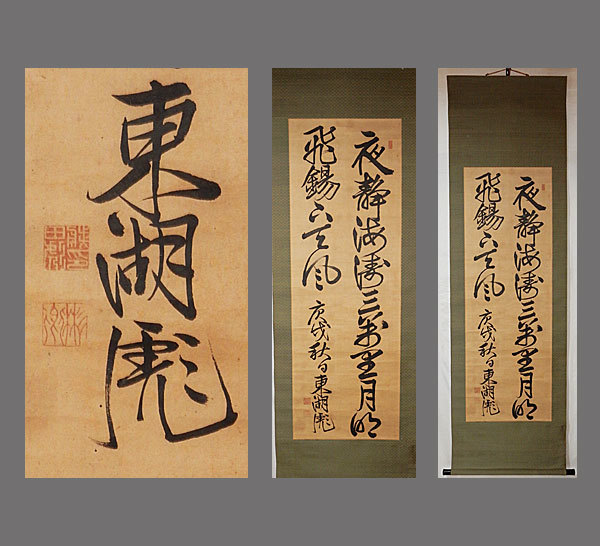 東湖彪
夜静海濤三萬里月明
飛錫下天風
庚戌秋日東湖彪
夜静海濤三萬里月明
飛錫下天風
庚戌秋日東湖彪